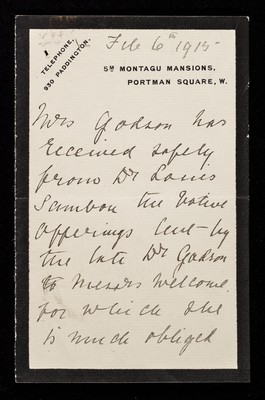 TELEPHONE,
930 PADDINGTON.
Feb 6th 1915
5M MONTAGU MANSIONS,
PORTMAN SQUARE, W.
Mrs Godson has
received safely
from Dr Louis
Sambon the Votive
Offerings lent by
the late Dr Godson
to Messrs Welcome.
for which she
is much obliged